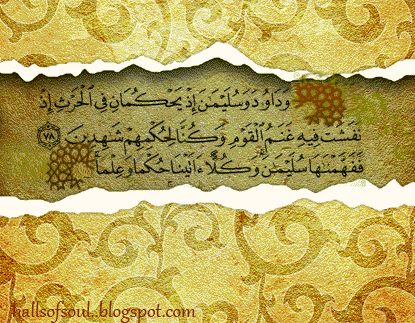 وَدَاوُۥدَ وَسُلَيْمَٰنَ إِذْ يَحْكُمَانِ فِى ٱلْحَرْثِ إِذْ
نَفَشَتْ فِيهِ غَنَمُ ٱلْقَوْمِ وَكُنَّا لِحُكْمِهِمْ شَٰهِدِينَ ٧٨
فَفَهَّمْنَٰهَا سُلَيْمَٰنَ وَكُلًّا ءَاتَيْنَا حُكْمًا وَعِلْمًا
hallsofsoul.blogspot.com